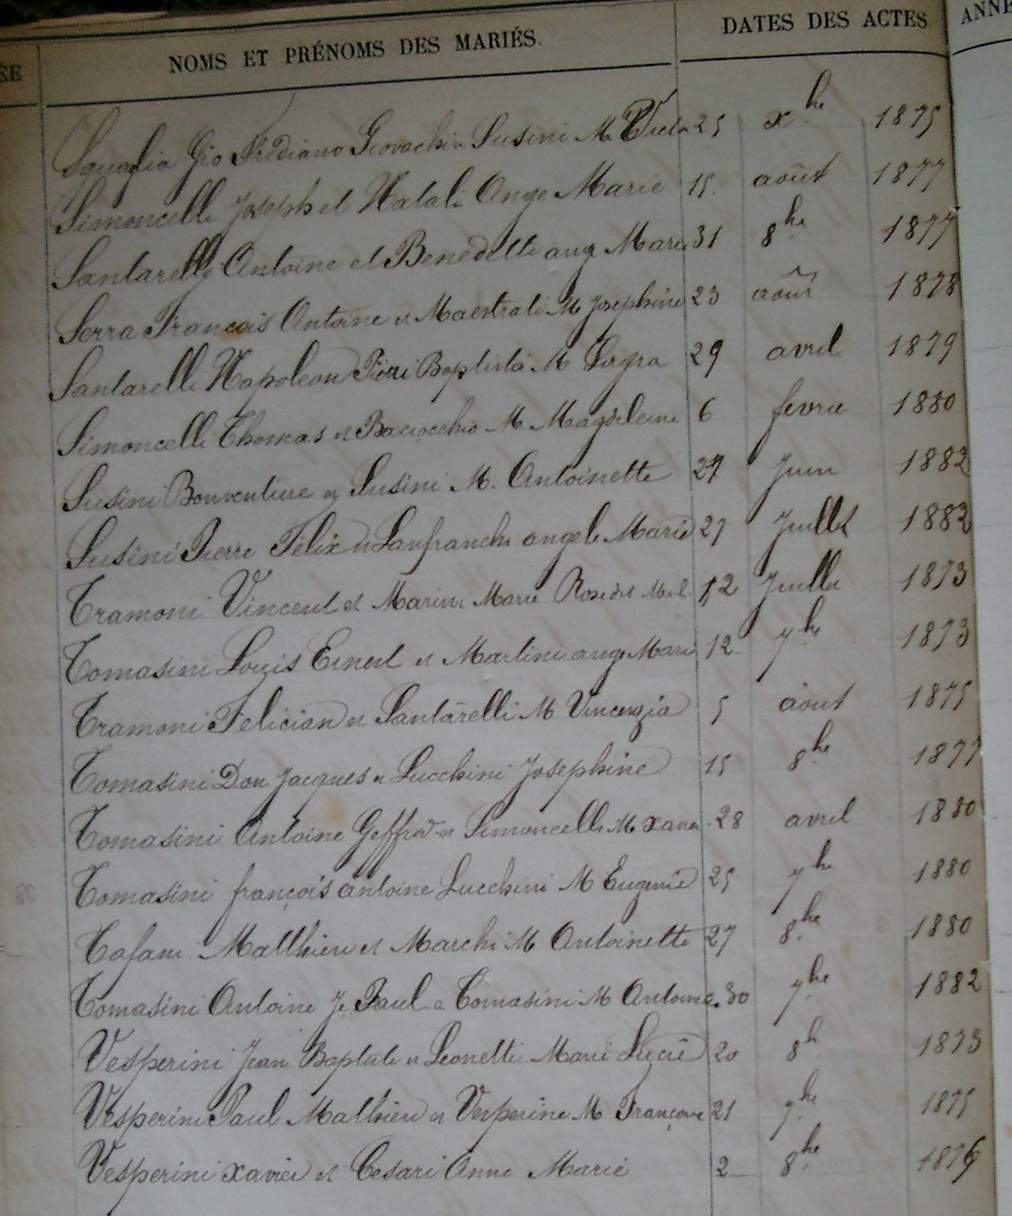 ÉE NOMS ET PRÉNOMS DES MARIÉS. DATES DES ACTES ANNÉ
Gio Frediano Giovachin Susini M. 25 xbre 1875
Simoncelli Joseph et Natali Ange Marie 15 août 1877
Santarelli Antoine et Benedetti ang Marie 31 8bre 1877
Serra François Antoine et Maestrati M Josephine 23 août 1878
Santarelli Napoleon Pieri Baptista M 29 avril 1879
Simoncelli Thomas et Baciocchio M Magdeleine 6 fevrie 1880
Susini Bonventure et Susini M. Antoinette 27 Juin 1882
Susini Pierre Félix et Lanfranchi angele Marie 27 Juillet 1882
Tramoni Vincent et Marini Marie Rose 12 Juillet 1873
Tomasini Louis Ernest et Martini ange Marie 12 7bre 1873
Tramoni Felician et Santarelli M Vincenzia 5 août 1875
Tomasini Don Jacques et Lucchini Josephine 15 8bre 1877
Tomasini Antoine Geffroi et Simoncelli M Xavier 28 avril 1880
Tomasini françois antoine Lucchini M Eugenie 25 7bre 1880
Tafani Matthieu et Marchi M Antoinette 27 8bre 1880
Tomasini Antoine Je Paul et Tomasini M Antoine 30 7bre 1882
Vesperini Jean Baptiste et Leonetti Marie Lucie 20 8bre 1873
Vesperini Paul Mathieu et Vesperine M Françoise 21 7bre 1875
Vesperini Xavier et Cesari Anne Marie 2 8bre 1876